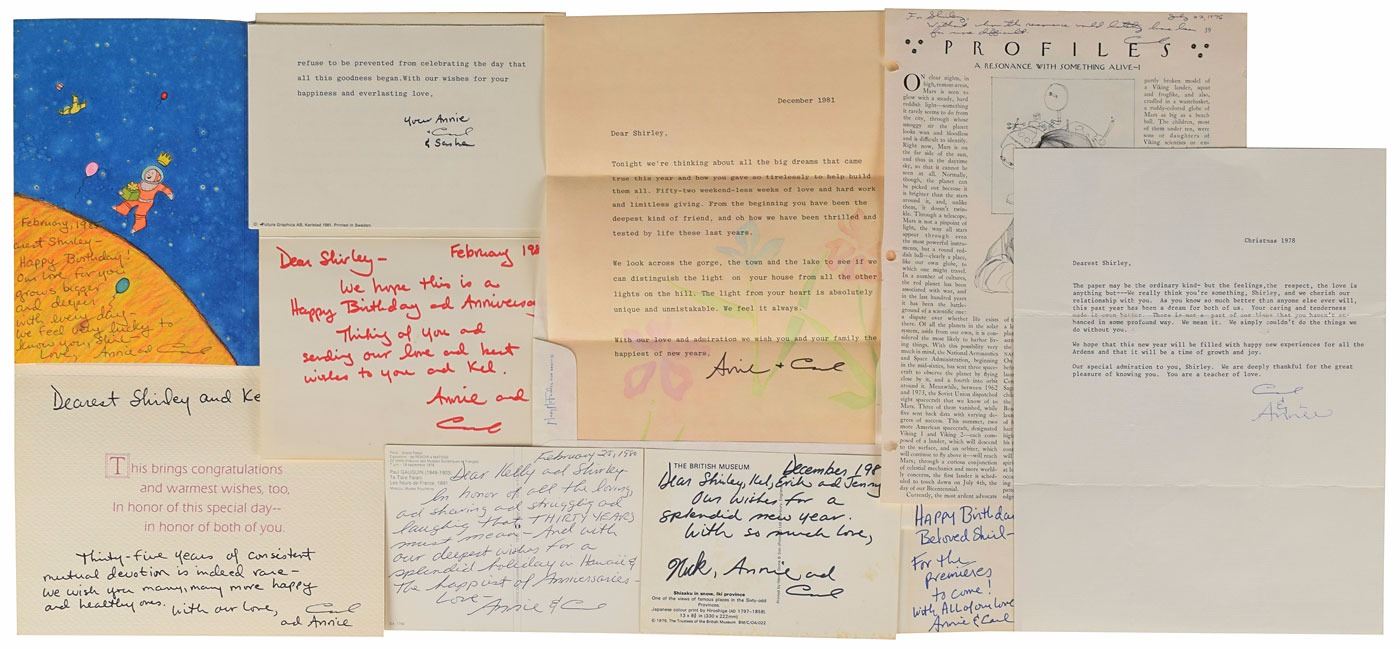 February, 198
earest Shirley-
Happy Birthday!
Our love for you
grows bigger
and deeper
with every day-
We feel very lucky to
know you, Shir-
Love, Annie ad Carl
refuse to be prevented from celebrating the day that
all this goodness began.With our wishes for your
happiness and everlasting love,
your Annie
+ Carl
& Sasha
Future Graphics AB, Karlstad 1981. Printed in Sweden.
Dear Shirley-
February 198
We hope this is a
Happy Birthday ad Anniversay
Thinking of you ad
sending our love ad best
wishes to you ad Kel.
Annie ad
Carl
December 1981
Dear Shirley,
Tonight we're thinking about all the big dreams that came
true this year and how you gave so tirelessly to help build
them all. Fifty-two weekend-less weeks of love and hard work
and limitless giving. From the beginning you have been the
deepest kind of friend, and oh how we have been thrilled and
tested by life these last years.
We look across the gorge, the town and the lake to see if we
can distinguish the light on your house from all the other
lights on the hill. The light from your heart is absolutely
unique and unmistakable. We feel it always.
With our love and admiration we wish you and your family the
happiest of new years,
Annie + Carl
For Shirley,
July 22, 1976
Without whom the resonance would have been
far more difficult.
Carl
39
PROFILES
A RESONANCE WITH SOMETHING ALIVE—I
ON clear nights, in
high, remote areas,
Mars is seen to
glow with a steady, hard
reddish light—something
it rarely seems to do from
the city, through whose
smoggy air the planet
looks wan and bloodless
and is difficult to identify.
Right now, Mars is on
the far side of the sun,
and thus in the daytime
sky, so that it cannot be
seen at all. Normally,
though, the planet can
be picked out because it
is brighter than the stars
around it, and, unlike
them, it doesn't twin-
kle. Through a telescope,
Mars is not a pinpoint
of light, the way all stars
appear through even
the most powerful instru-
ments, but a round red-
dish ball—clearly a place,
like our own globe, to
which one might travel.
In a number of cultures,
the red planet has been
associated with war, and
in the last hundred years
it has been the battle-
ground of a scientific one:
a dispute over whether life exists
there. Of all the planets in the solar
system, aside from our own, it is con-
sidered the most likely to harbor liv-
ing things. With this possibility very
much in mind, the National Aeronautics
and Space Administration, beginning
in the mid-sixties, has sent three space-
craft to observe the planet by flying
close by it, and a fourth into orbit
around it. Meanwhile, between 1962
and 1973, the Soviet Union dispatched
eight spacecraft that we know of to
Mars. Three of them vanished, while
five sent back data with varying de-
grees of success. This summer, two
more American spacecraft, designated
Viking 1 and Viking 2—each com-
posed of a lander, which will descend
to the surface, and an orbiter, which
will continue to fly above it—will reach
Mars; through a curious conjunction
of celestial mechanics and more world-
ly concerns, the first lander is sched-
uled to touch down on July 4th, the
day of our Bicentennial.
Currently, the most ardent advocate
partly broken model of
a Viking lander, squat
and froglike, and also,
cradled in a wastebasket,
a ruddy-colored globe of
Mars as big as a beach
ball. The children, most
of them under ten, were
sons or daughters of
Viking scientists or en-
Christmas 1978
Dearest Shirley,
The paper may be the ordinary kind- but the feelings,the respect, the love is
anything but---We really think you're something, Shirley, and we cherish our
relationship with you. As you know so much better than anyone else ever will,
this past year has been a dream for both of us. Your caring and tenderness
made it even better. There is not a part of our lives that you haven't en-
hanced in some profound way. We mean it. We simply couldn't do the things we
do without you.
We hope that this new year will be filled with happy new experiences for all the
Ardens and that it will be a time of growth and joy.
Our special admiration to you, Shirley. We are deeply thankful for the great
pleasure of knowing you. You are a teacher of love.
Carl
&
Annie
Dearest Shirley and Ke
This brings congratulations
and warmest wishes, too,
In honor of this special day--
in honor of both of you.
Thirty-five years of consistent
mutual devotion is indeed rare-
we wish you many, many more happy
and healthy ones. With our love, Carl
ad Annie
Paul GAUGUIN (1848-1903)
Te Faré Farani
Les fleurs de France, 1891
February 25, 1980
Dear Kelly ad Shirley
In honor of all the loving
ad sharing ad struggling ad
laughing that THIRTY YEARS
must mean- And with
our deepest wishes for a
splendid holiday in Hawaii &
The happiest of Anniversaries-
Love- Annie & Carl
THE BRITISH MUSEUM
December, 198
Dear Shirley, Kel, Erik ad Jenny
Our wishes for a
splendid new year.
With so much love,
Nick, Annie ad
Carl
Shisaku in snow, Iki province
One of the views of famous places in the Sixty-odd
Provinces.
Japanese colour print by Hiroshige (AD 1797-1858)
13 x 8¾ in (330 x 222mm)
© 1979, The Trustees of the British Museum BM/C/OA/022
HAPPY Birthday
Beloved Shirl-
For the
premieres
to come!
With All of our love
Annie & Carl